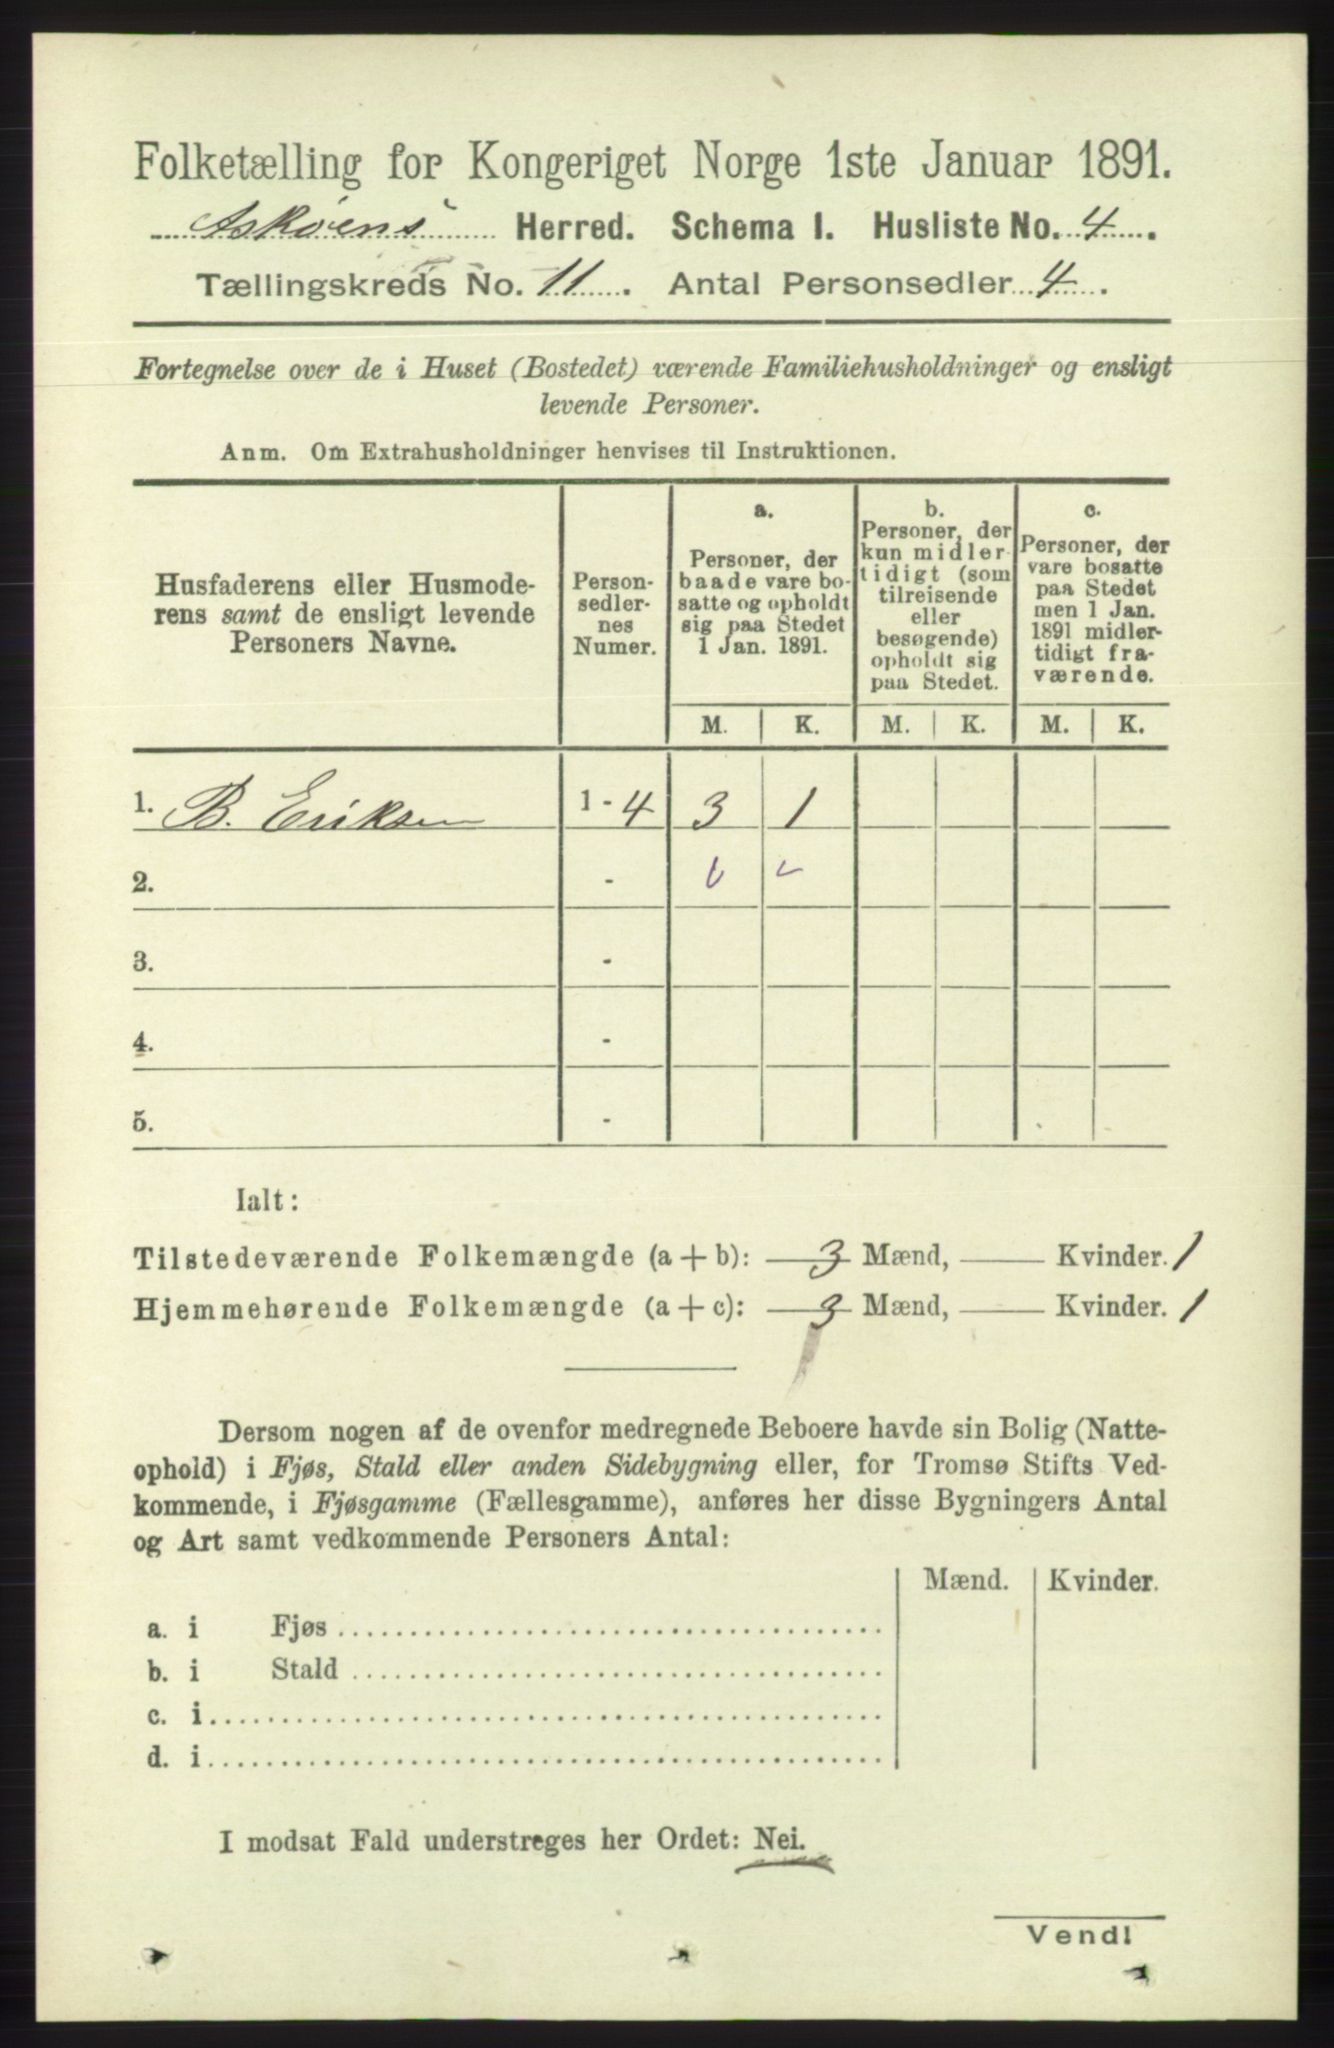 Folketælling for Kongeriget Norge 1ste Januar 1891.
Askøens Herred. Schema I. Husliste No. 4.
Tællingskreds No. 11. Antal Personsedler 4.
Fortegnelse over de i Huset (Bostedet) værende Familiehusholdninger og ensligt
levende Personer.
Anm. Om Extrahusholdninger henvises til Instruktionen.
Husfaderens eller Husmode-
rens samt de ensligt levende
Personers Navne.
Person-
sedler-
nes
Numer.
a.
Personer, der
baade vare bo-
satte og opholdt
sig paa Stedet
1 Jan. 1891.
b.
Personer, der
kun midler-
tidigt (som
tilreisende
eller
besøgende)
opholdt sig
paa Stedet.
c.
Personer, der
vare bosatte
paa Stedet
men 1 Jan.
1891 midler-
tidigt fra-
værende.
M. K. M. K. M. K.
1. B. Eriksen 1 - 4 3 1
2. -
3. -
4. -
5. -
Ialt:
Tilstedeværende Folkemængde (a + b): 3 Mænd, Kvinder. 1
Hjemmehørende Folkemængde (a + c): 3 Mænd, Kvinder. 1
Dersom nogen af de ovenfor medregnede Beboere havde sin Bolig (Natte-
ophold) i Fjøs, Stald eller anden Sidebygning eller, for Tromsø Stifts Ved-
kommende, i Fjøsgamme (Fællesgamme), anføres her disse Bygningers Antal
og Art samt vedkommende Personers Antal:
Mænd. Kvinder.
a. i Fjøs
b. i Stald
c. i
d. i
I modsat Fald understreges her Ordet: Nei.
Vend!